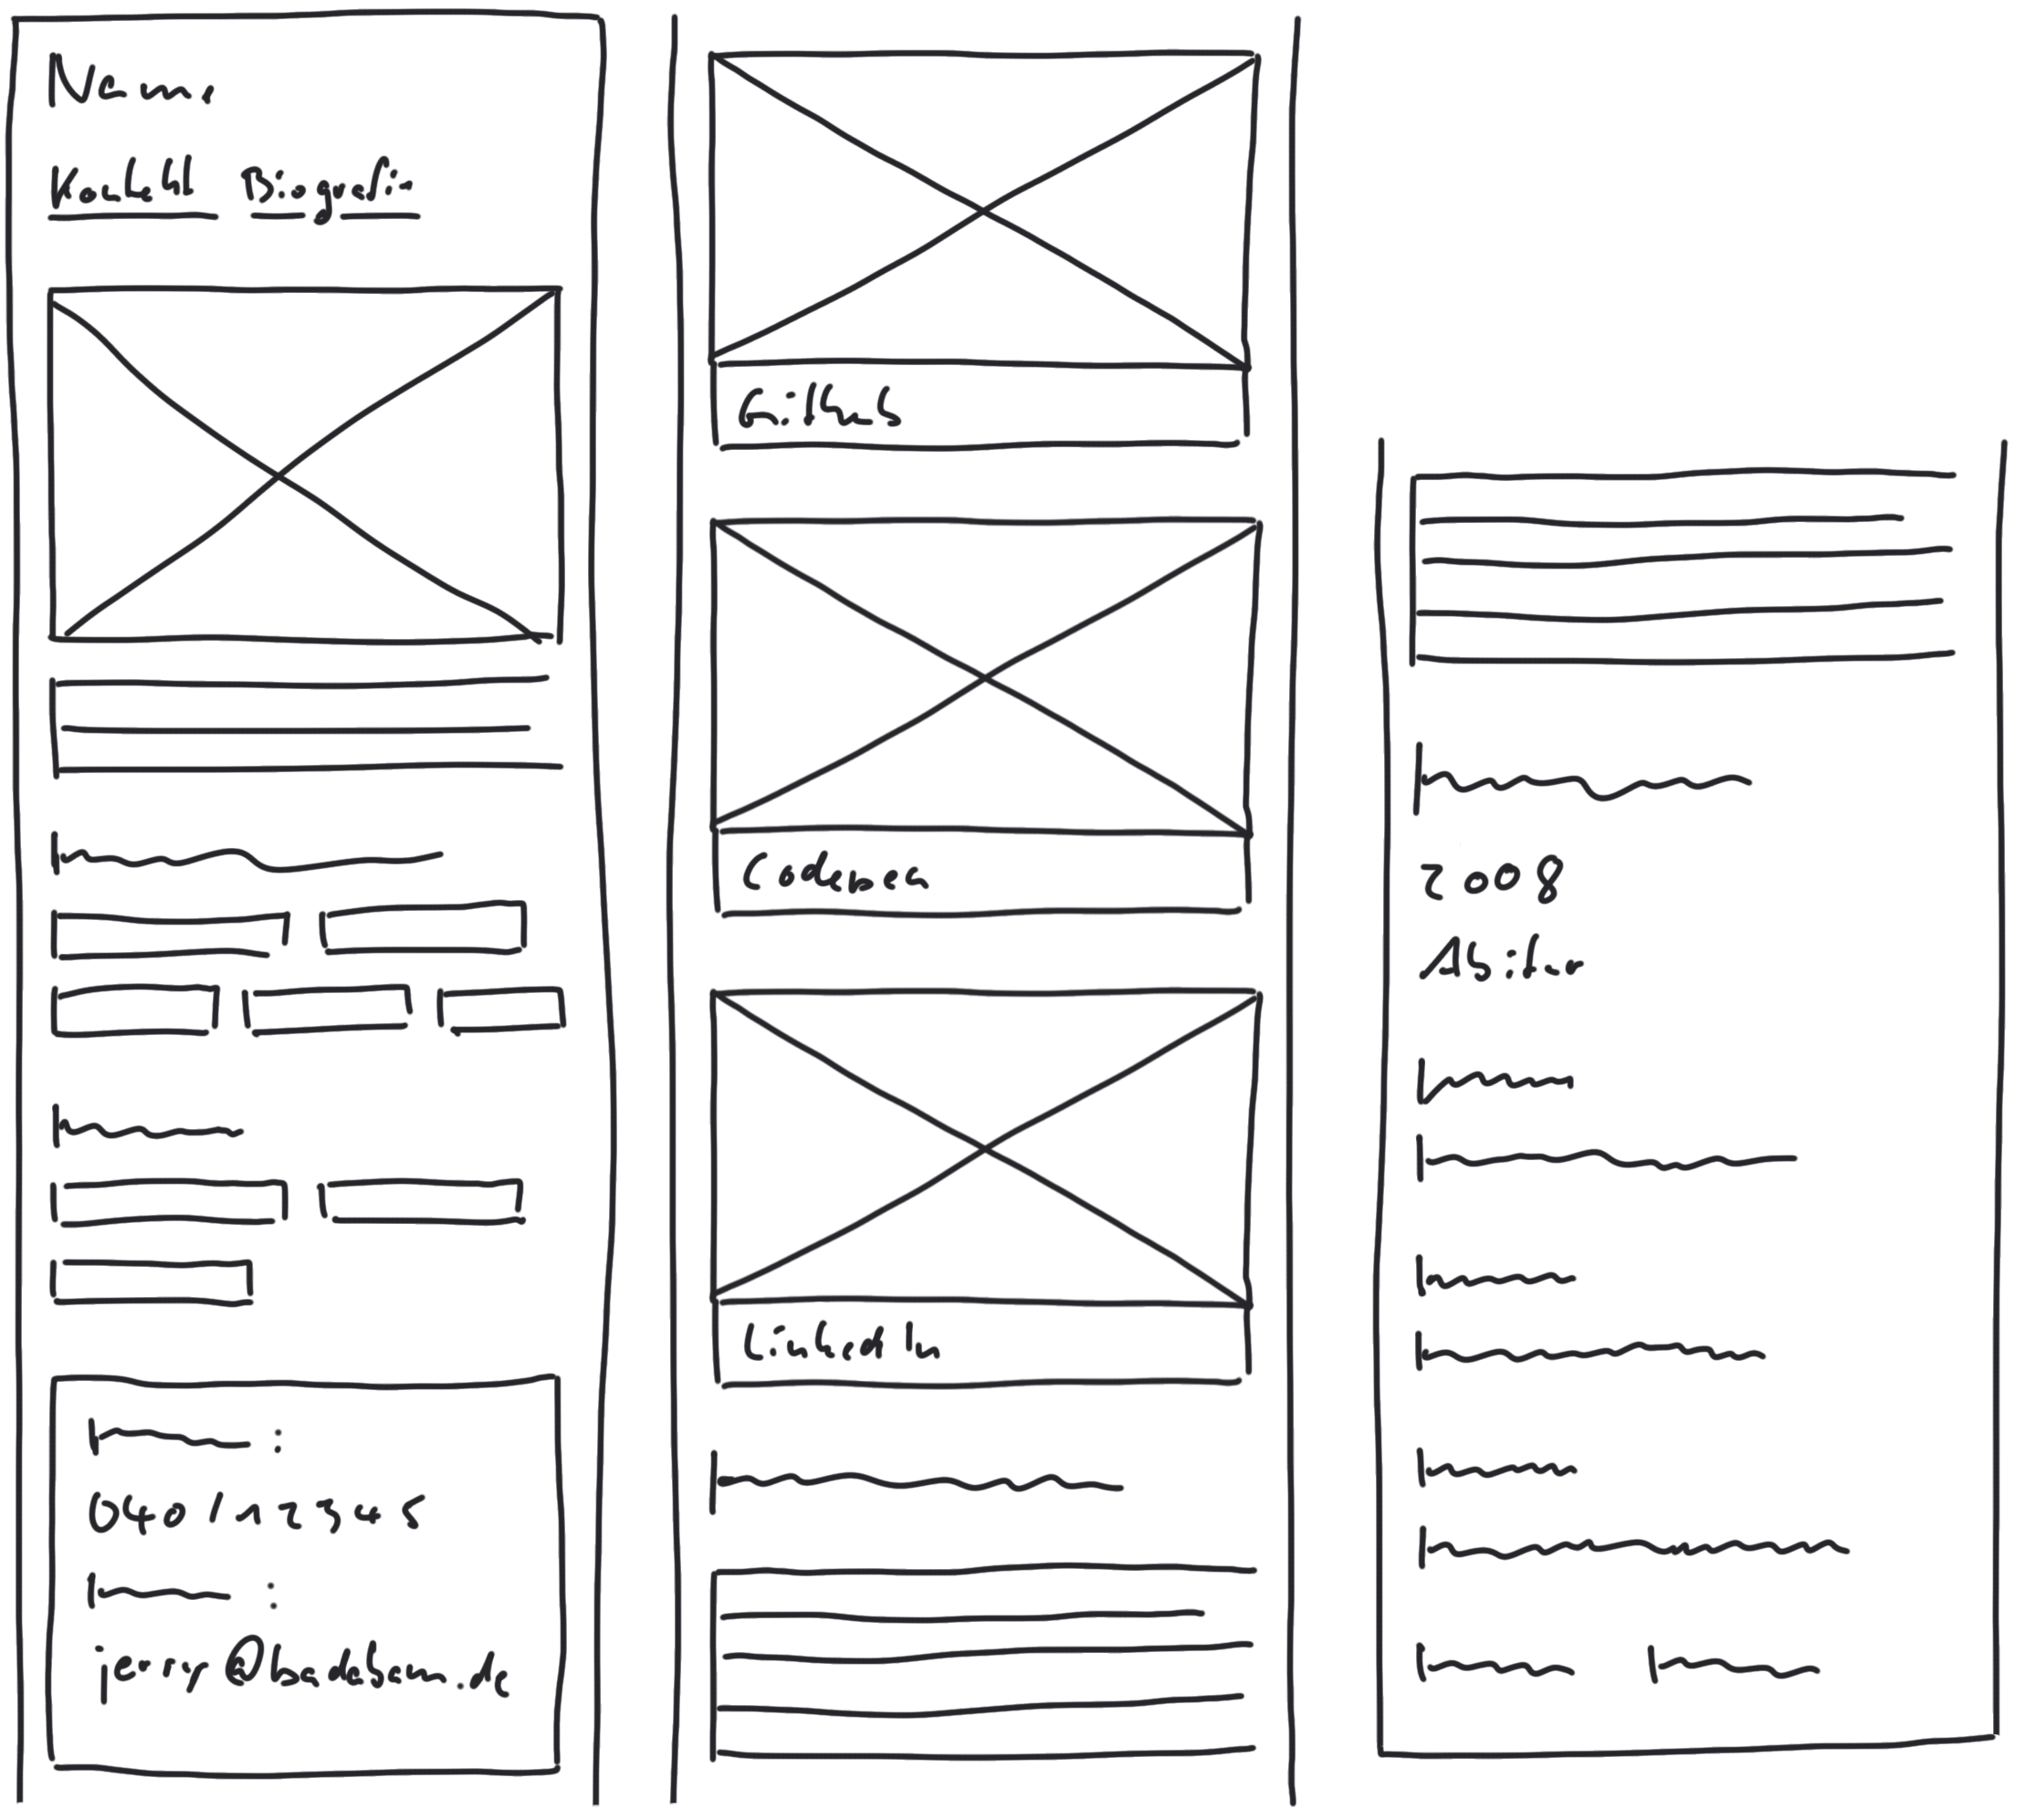 Name
Kontakt Biografie
040/12345
jerry@badabam.de
Github
Codepen
LinkedIn
2008
Abitur